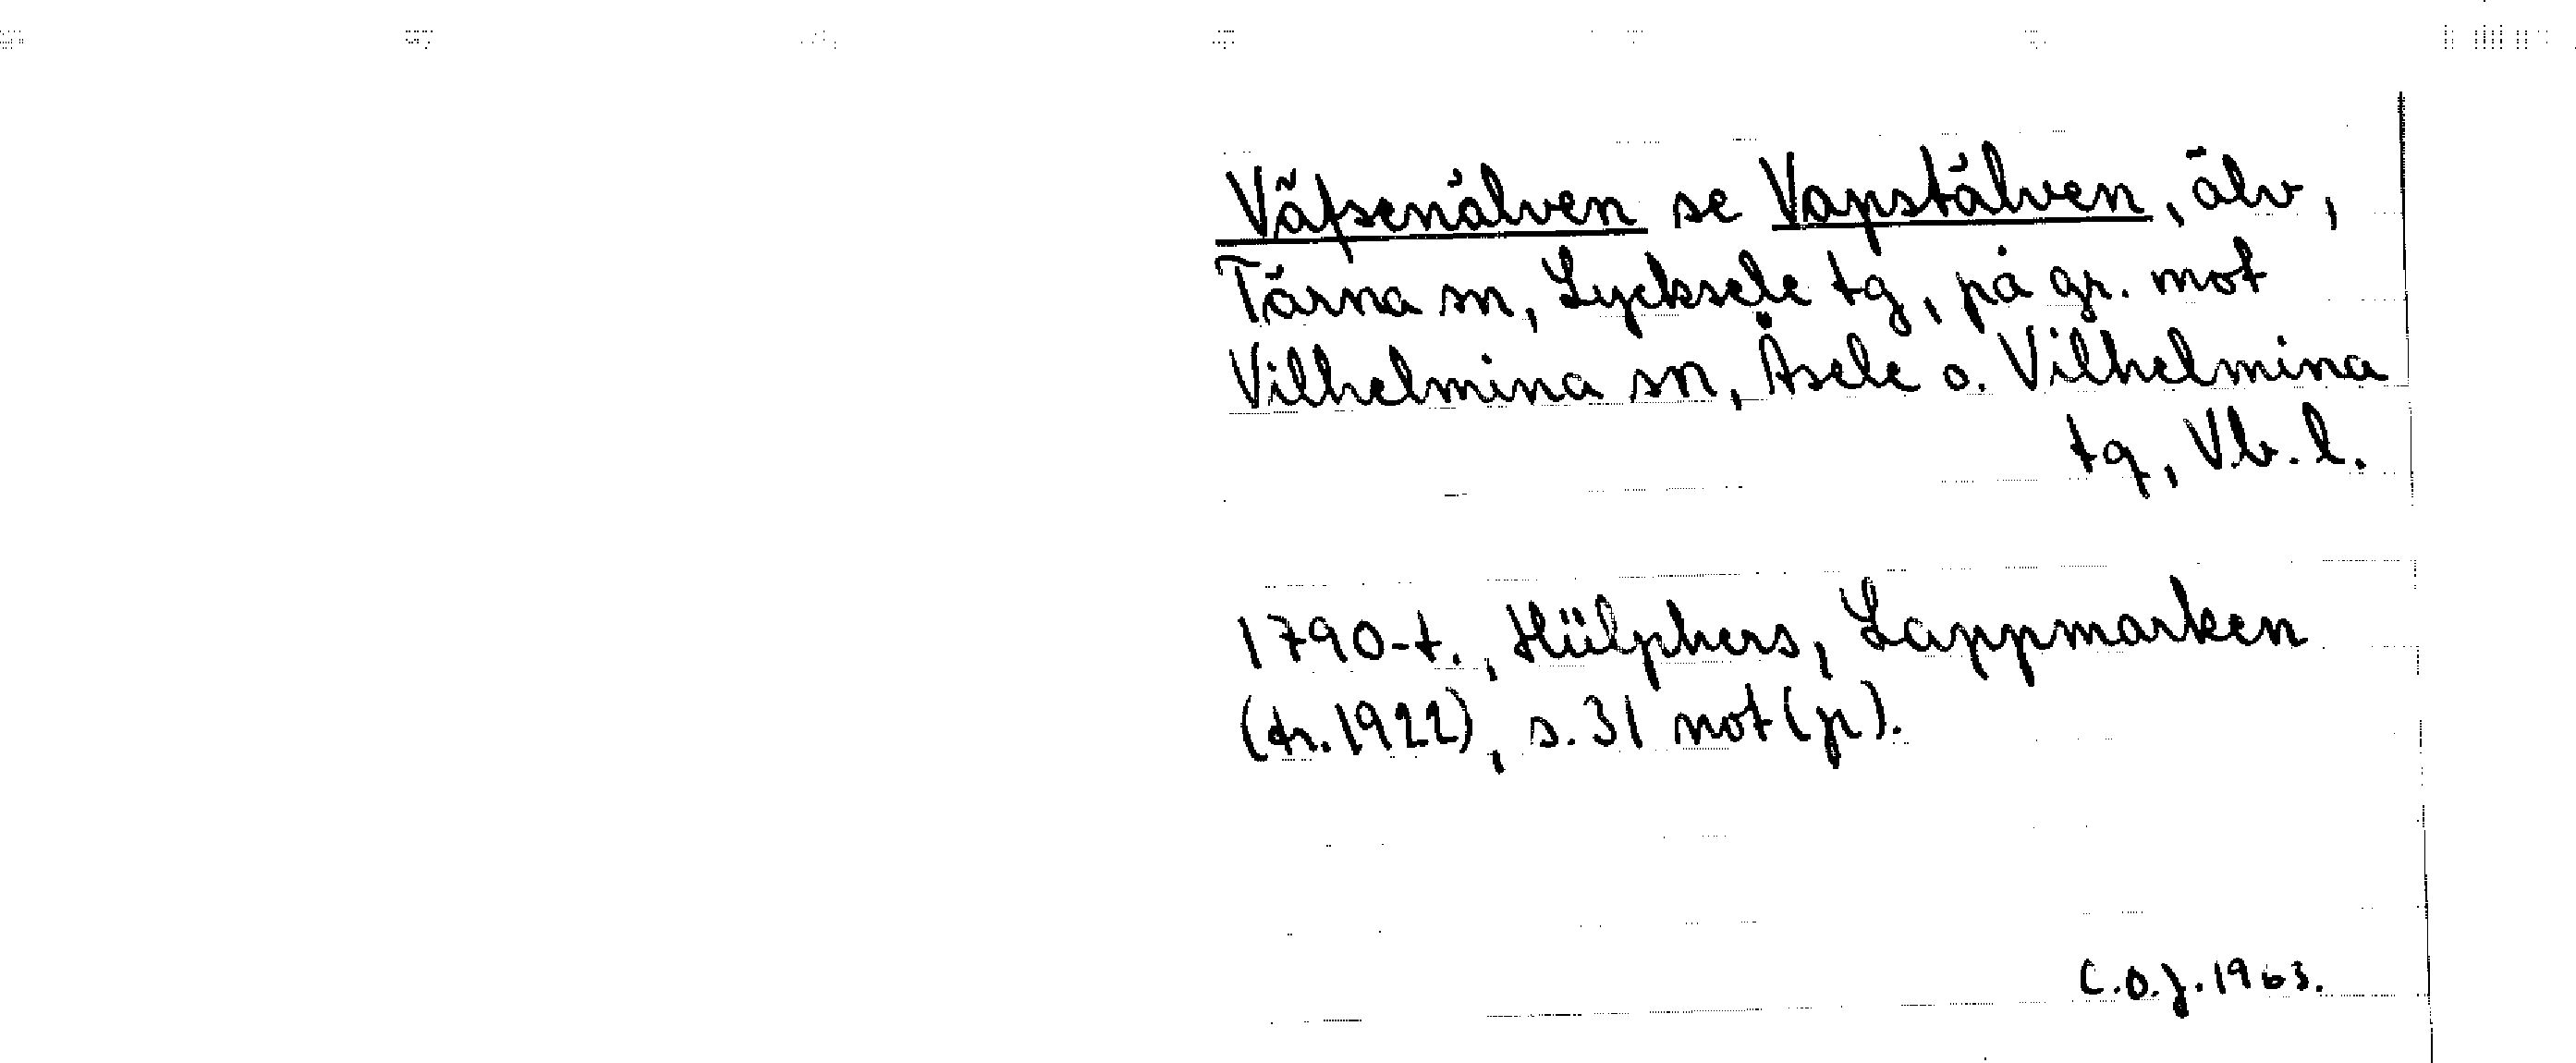 Väfsenälven se Vapstälven, älv,
Tärna sn, Lycksele tg, på gr. mot
Vilhelmina sn, Åsele o. Vilhelmina
tg, Vb. l.
1790-t., Hülphers, Lappmarken
(tr. 1922), s. 31 not (p).
C.O.J. 1963.